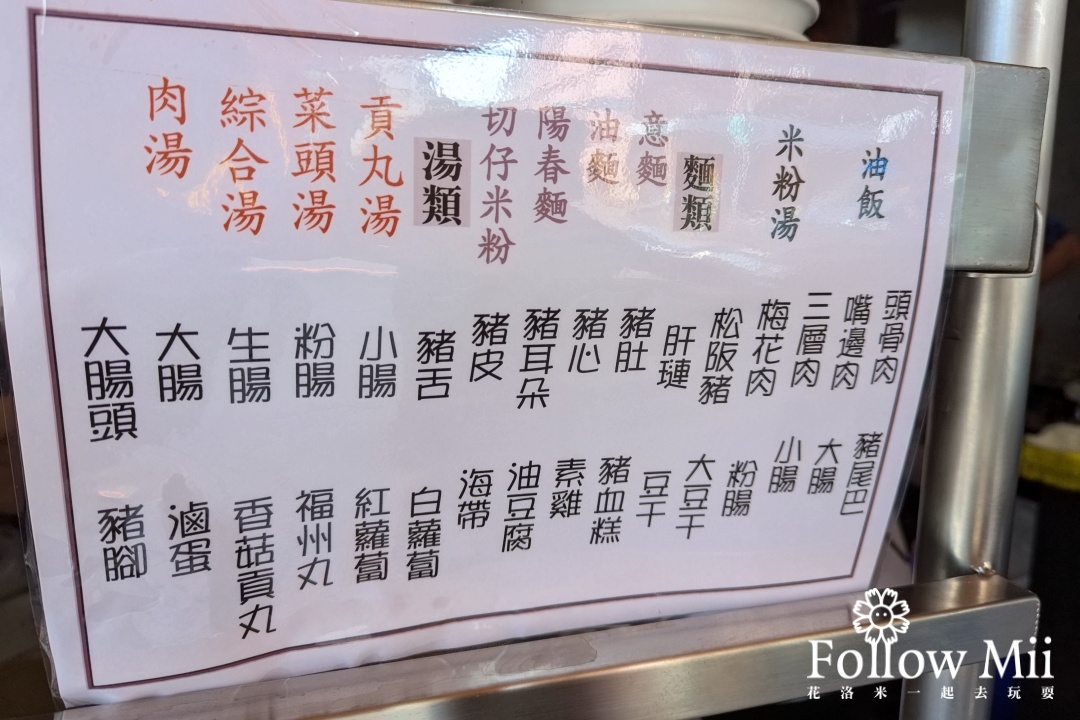 油飯
米粉湯
麵類
意麵
油麵
陽春麵
切仔米粉
湯類
貢丸湯
菜頭湯
綜合湯
肉湯
頭骨肉
嘴邊肉
三層肉
梅花肉
松阪豬
肝璉
豬肚
豬心
豬耳朵
豬皮
豬舌
小腸
粉腸
生腸
大腸
大腸頭
豬尾巴
大腸
小腸
粉腸
大豆干
豆干
豬血糕
素雞
油豆腐
海帶
白蘿蔔
紅蘿蔔
福州丸
香菇貢丸
滷蛋
豬腳
Follow Mii
花洛米一起去玩耍